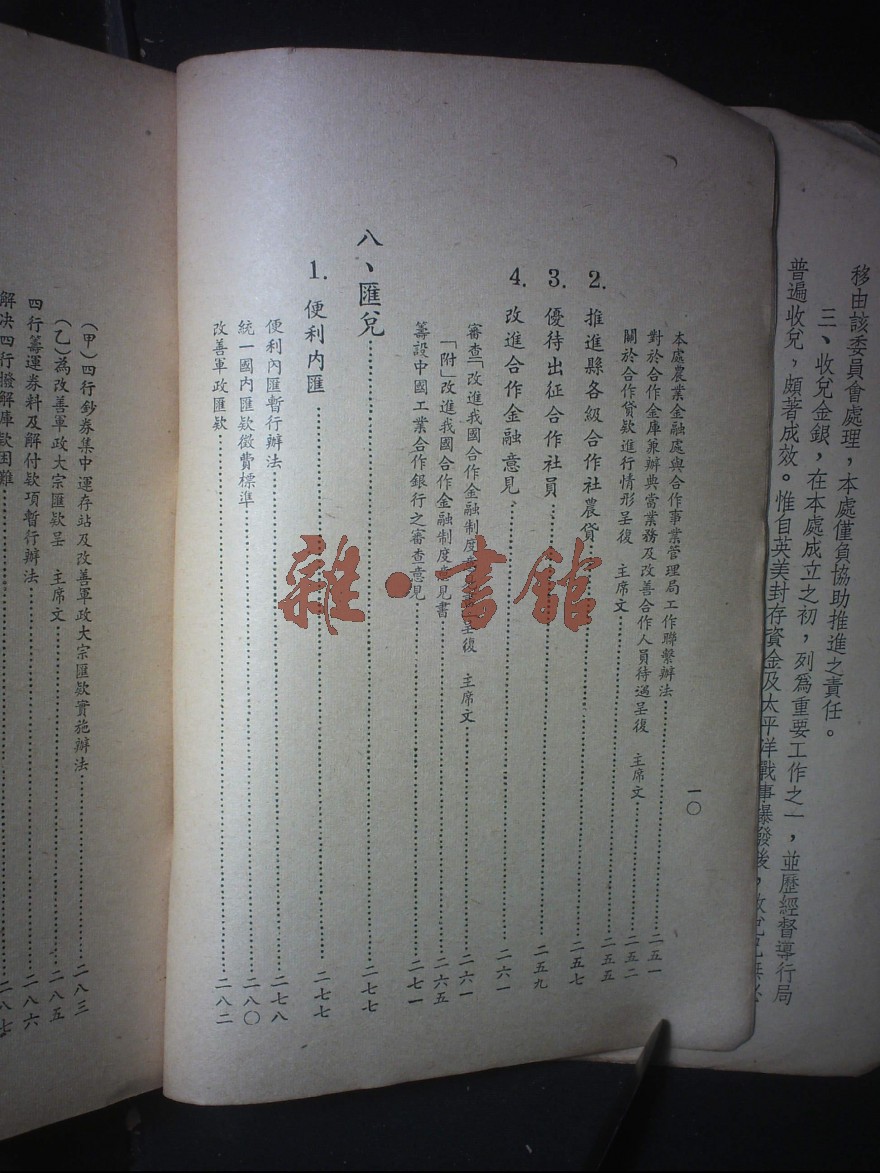 移由該委員會處理，本處僅負協助推進之責任。
三、收兌金銀，在本處成立之初，列爲重要工作之一，並歷經督導行局
普遍收兌，頗著成效。惟自英美封存資金及太平洋戰事爆發後，收兌
一〇
本處農業金融處與合作事業管理局工作聯繫辦法……二五一
對於合作金庫兼辦典當業務及改善合作人員待遇呈復　主席文……二五二
關於合作貸款進行情形呈復　主席文……二五五
2. 推進縣各級合作社農貸……二五七
3. 優待出征合作社員……二五九
4. 改進合作金融意見……二六一
審查「改進我國合作金融制度意見書」呈復　主席文……二六一
「附」改進我國合作金融制度意見書……二六五
籌設中國工業合作銀行之審查意見……二七一
八、匯兌……二七七
1. 便利内匯……二七七
便利內匯暫行辦法……二七八
統一國内匯款徵費標準……二八〇
改善軍政匯款……二八二
（甲）四行鈔券集中運存站及改善軍政大宗匯款實施辦法……二八三
（乙）為改善軍政大宗匯款呈　主席文……二八五
四行籌運券料及解付款項暫行辦法……二八六
解决四行撥解庫款困難……二八七
雜·書館